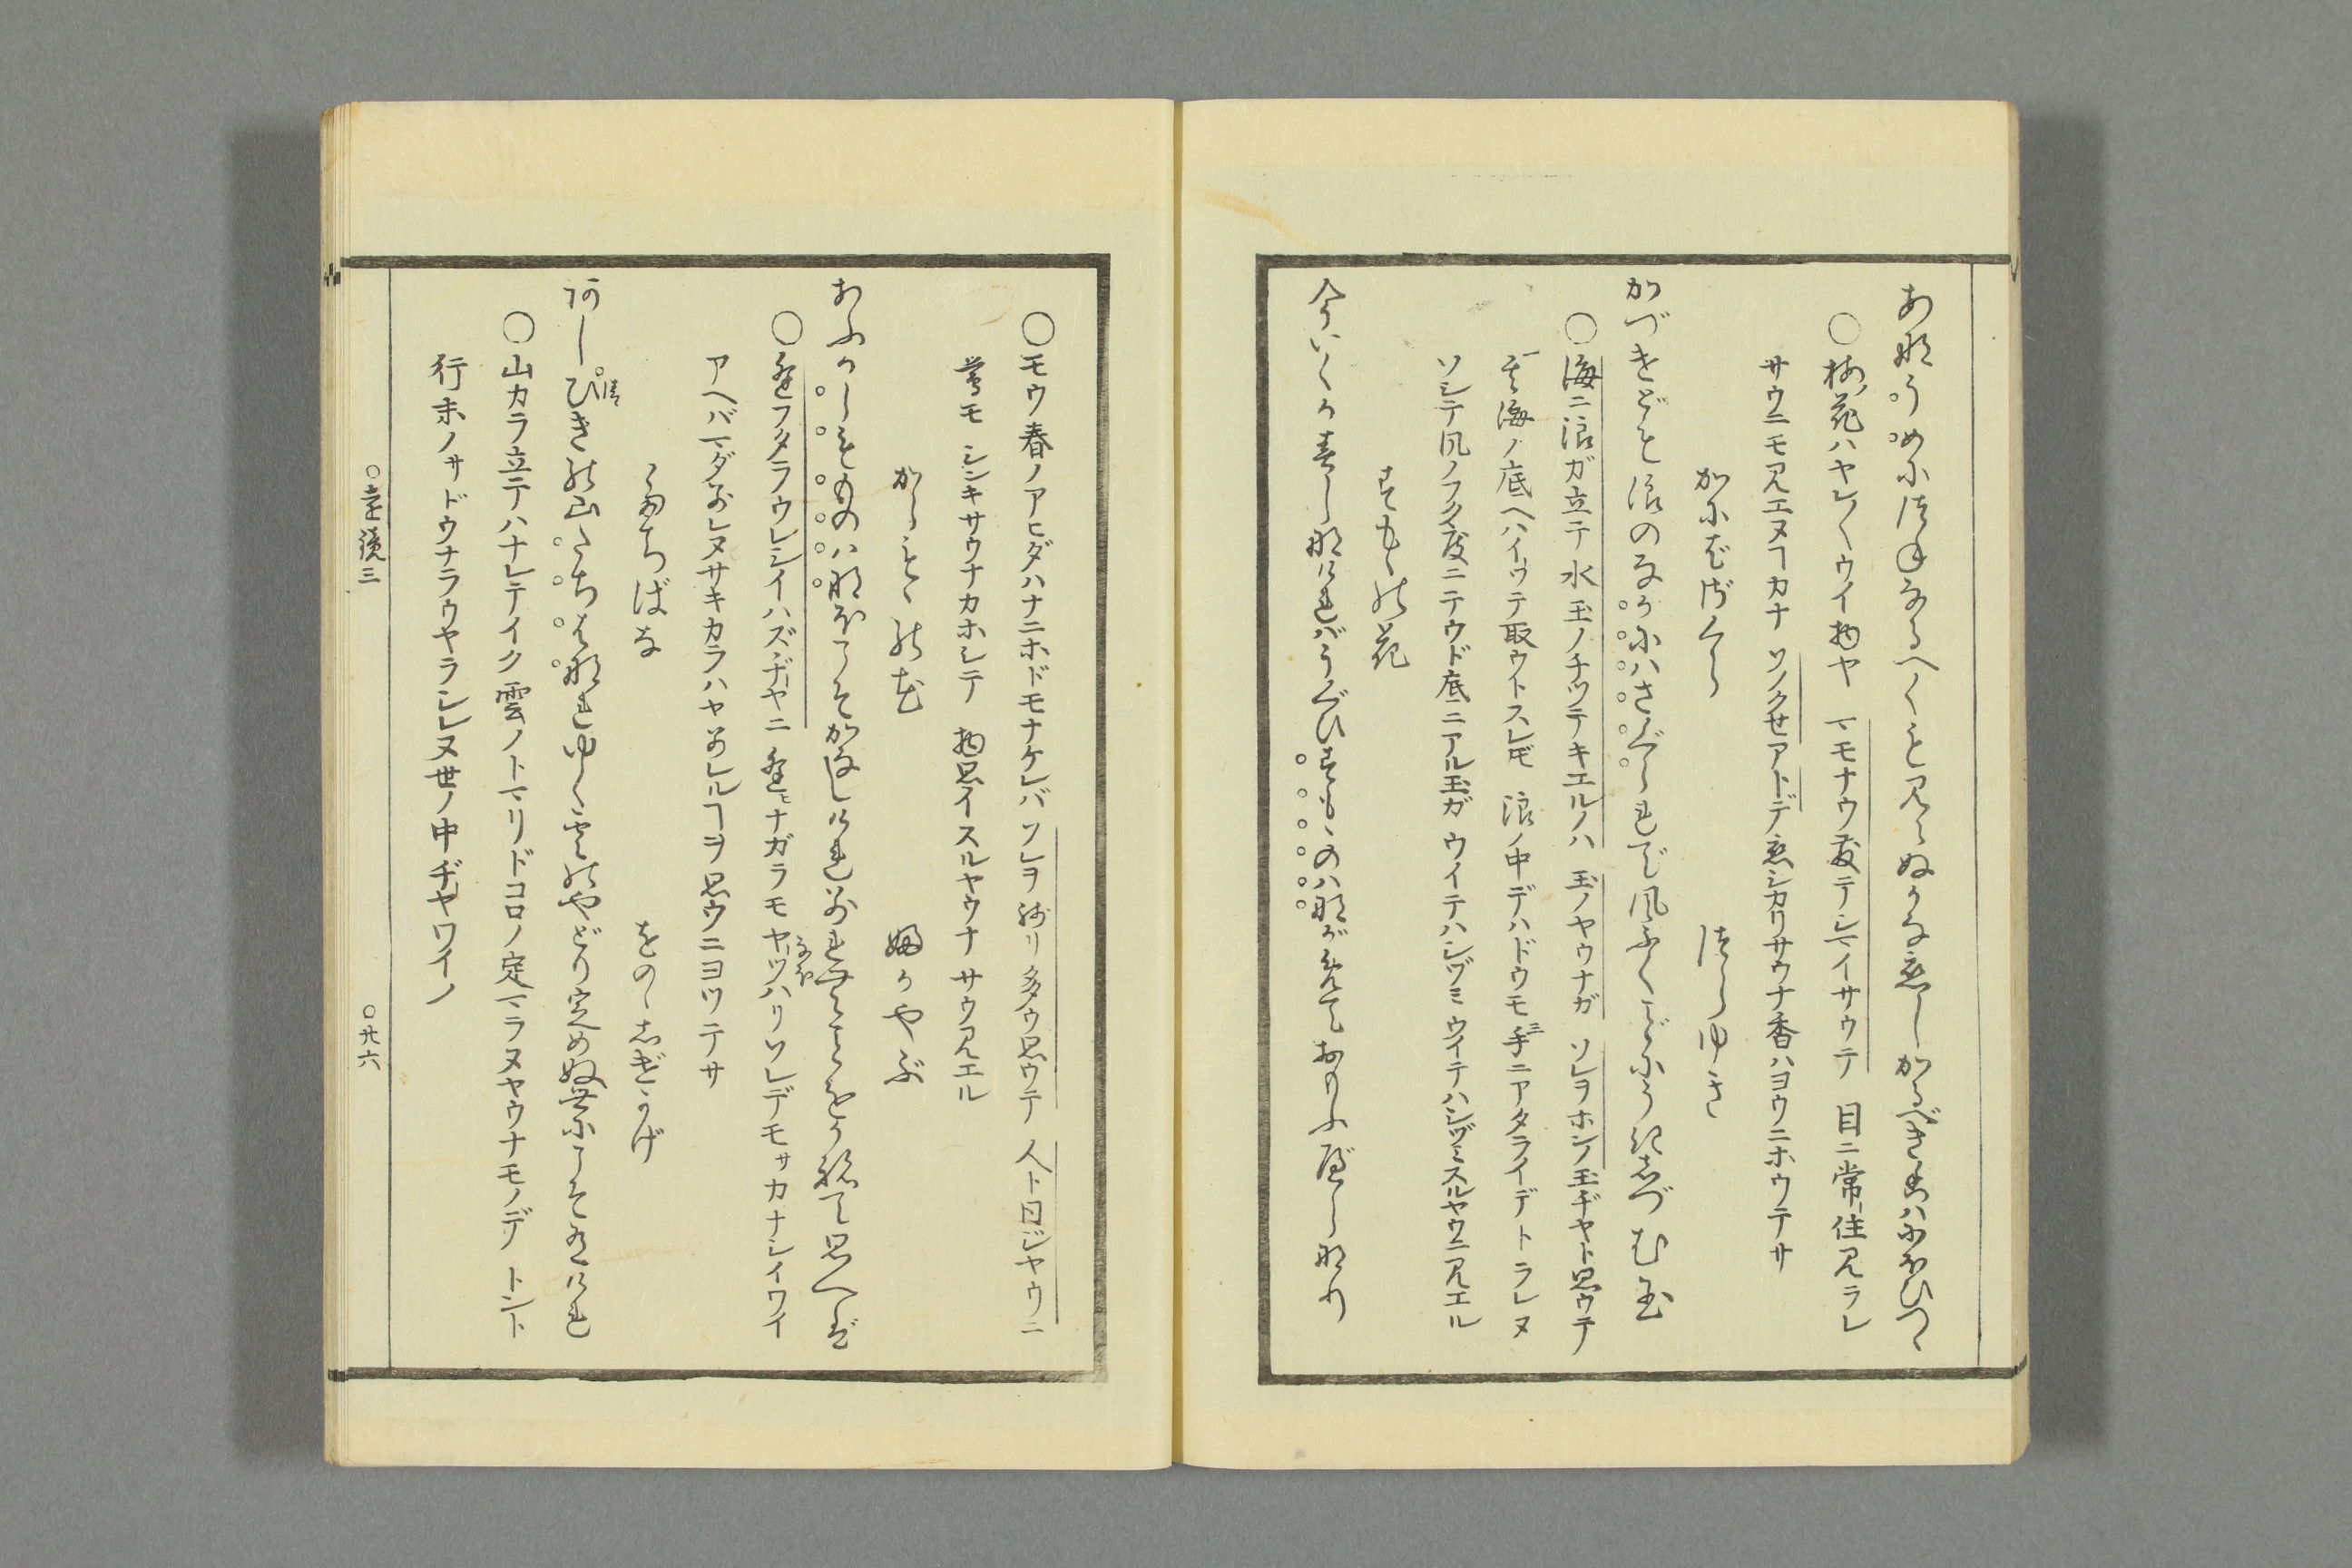 あなうめにつねなるべくも見えぬかな恋しかるべき香はにほひつゝ
○梅ノ花ハヤレ〳〵ウイ物ヤ　マモナウ散テシマイサウテ　目ニ常住見ラレ
サウニモ見エヌヿカナ　ソノクセアトデ恋シカリサウナ香ハヨウニホウテサ
かにばざくら　つらゆき
かづけども浪のなかにはさぐられで風ふくごとにうきしづむ玉
○海ニ浪ガ立テ水玉ノチツテキエルノハ　玉ノヤウナガ　ソレヲホンノ玉ヂヤト思ウテ
其海ノ底ヘハイツテ取ウトスレドモ　浪ノ中デハドウモ手ニアタライデトラレヌ
ソシテ風ノフク度ニテウド底ニアル玉ガ　ウイテハシヅミ　ウイテハシヅミスルヤウニ見エル
すもゝの花
今いくか春しなければうぐひすもものはながめておもふべらなり
○モウ春ノアヒダハナニホドモナケレバ　ソレヲ残リ多ウ思ウテ　人ト同ジヤウニ
鶯モ　シンキサウナカホシテ　物思イスルヤウナ　サウ見エル
からもゝの花　ふかやぶ
あふからもものはなほこそかなしけれ別れむことをかねて思へば
○逢フタラウレシイハズヂヤニ　逢ヒナガラモヤツハリソレデモサカナシイワイ
アヘバマダ別レヌサキカラハヤ別レルヿヲ思ウニヨツテサ
たちばな　をのゝしげかげ
あしひきの山たちはなれゆく雲のやどり定めぬ世にこそ有けれ
○山カラ立テハナレテイク雲ノトマリドコロノ定マラヌヤウナモノデ　トント
行末ノサドウナラウヤラシレヌ世ノ中ヂヤワイノ
○遠鏡三　○廿六